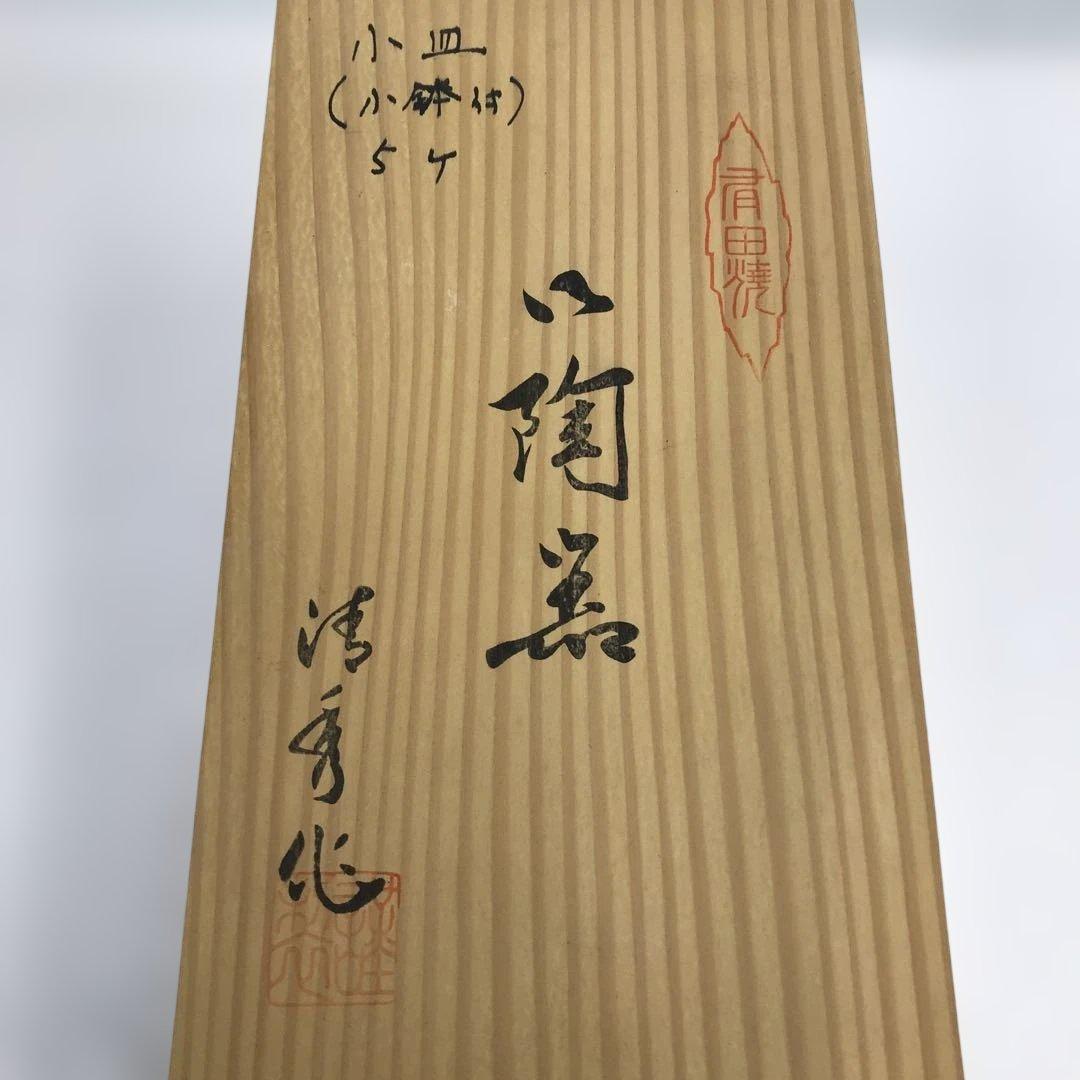 小皿
(小鉢付)
5ケ
有田燒
陶器
清秀作